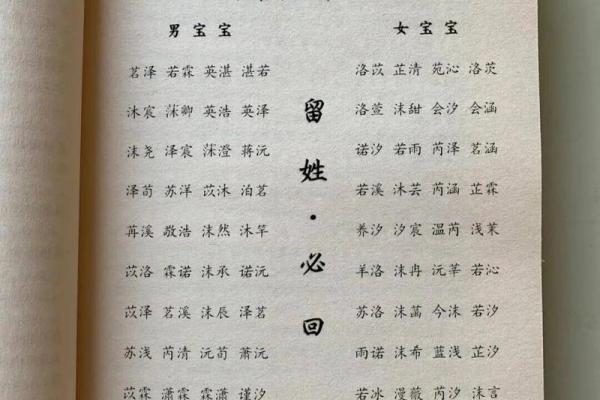 男宝宝
茗泽 若霖 英湛 湛若
沐宸 莯卿 英浩 英泽
沫尧 泽宸 莯澄 蒋沅
泽荀 苏洋 苡沐 泊茗
苒溪 敬浩 沫然 沐竿
苡洛 霖诺 沫承 诺沅
苡泽 茗溪 沫辰 泽茗
苏浅 芮清 沅荀 萧沅
苡霖 潇霖 霖潇 谨汐
留姓·必回
女宝宝
洛苡 芷清 苑沁 洛茨
洛萱 沫甜 会汐 会涵
诺汐 若雨 芮泽 茗涵
若溪 沐芸 芮涵 芷霖
养汐 汐宸 温芮 浅茉
羊洛 沫冉 沅莘 若沁
苏洛 沫菡 今沫 若汐
雨诺 沫希 蓝浅 芷汐
若冰 漫薇 芮汐 沫言